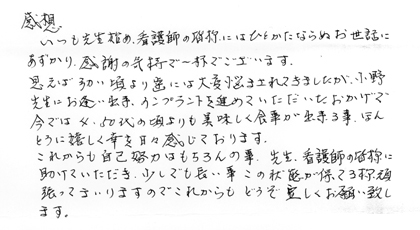 感想
いつも先生始め、看護師の皆様にはひとかたならぬお世話に
あずかり、感謝の気持で一杯でございます。
思えば可い頃より歯には大変悩まされてきましたが、小野
先生にお逢い出来、インプラントを進めていただいたおかげで
今では4、50代の頃よりも美味しく食事が出来る事、ほん
とうに嬉しく幸を日々感じております。
これからも自己努力はもちろんの事、先生、看護師の皆様に
助けていただき、少しでも長い事この状態が保てる様頑
張ってまいりますのでこれからもどうぞ宜しくお願い致し
ます。